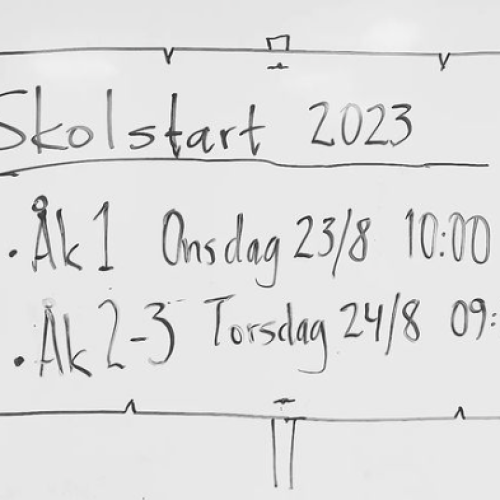 Skolstart 2023
• Åk 1 Onsdag 23/8 10:00
• Åk 2-3 Torsdag 24/8 09: